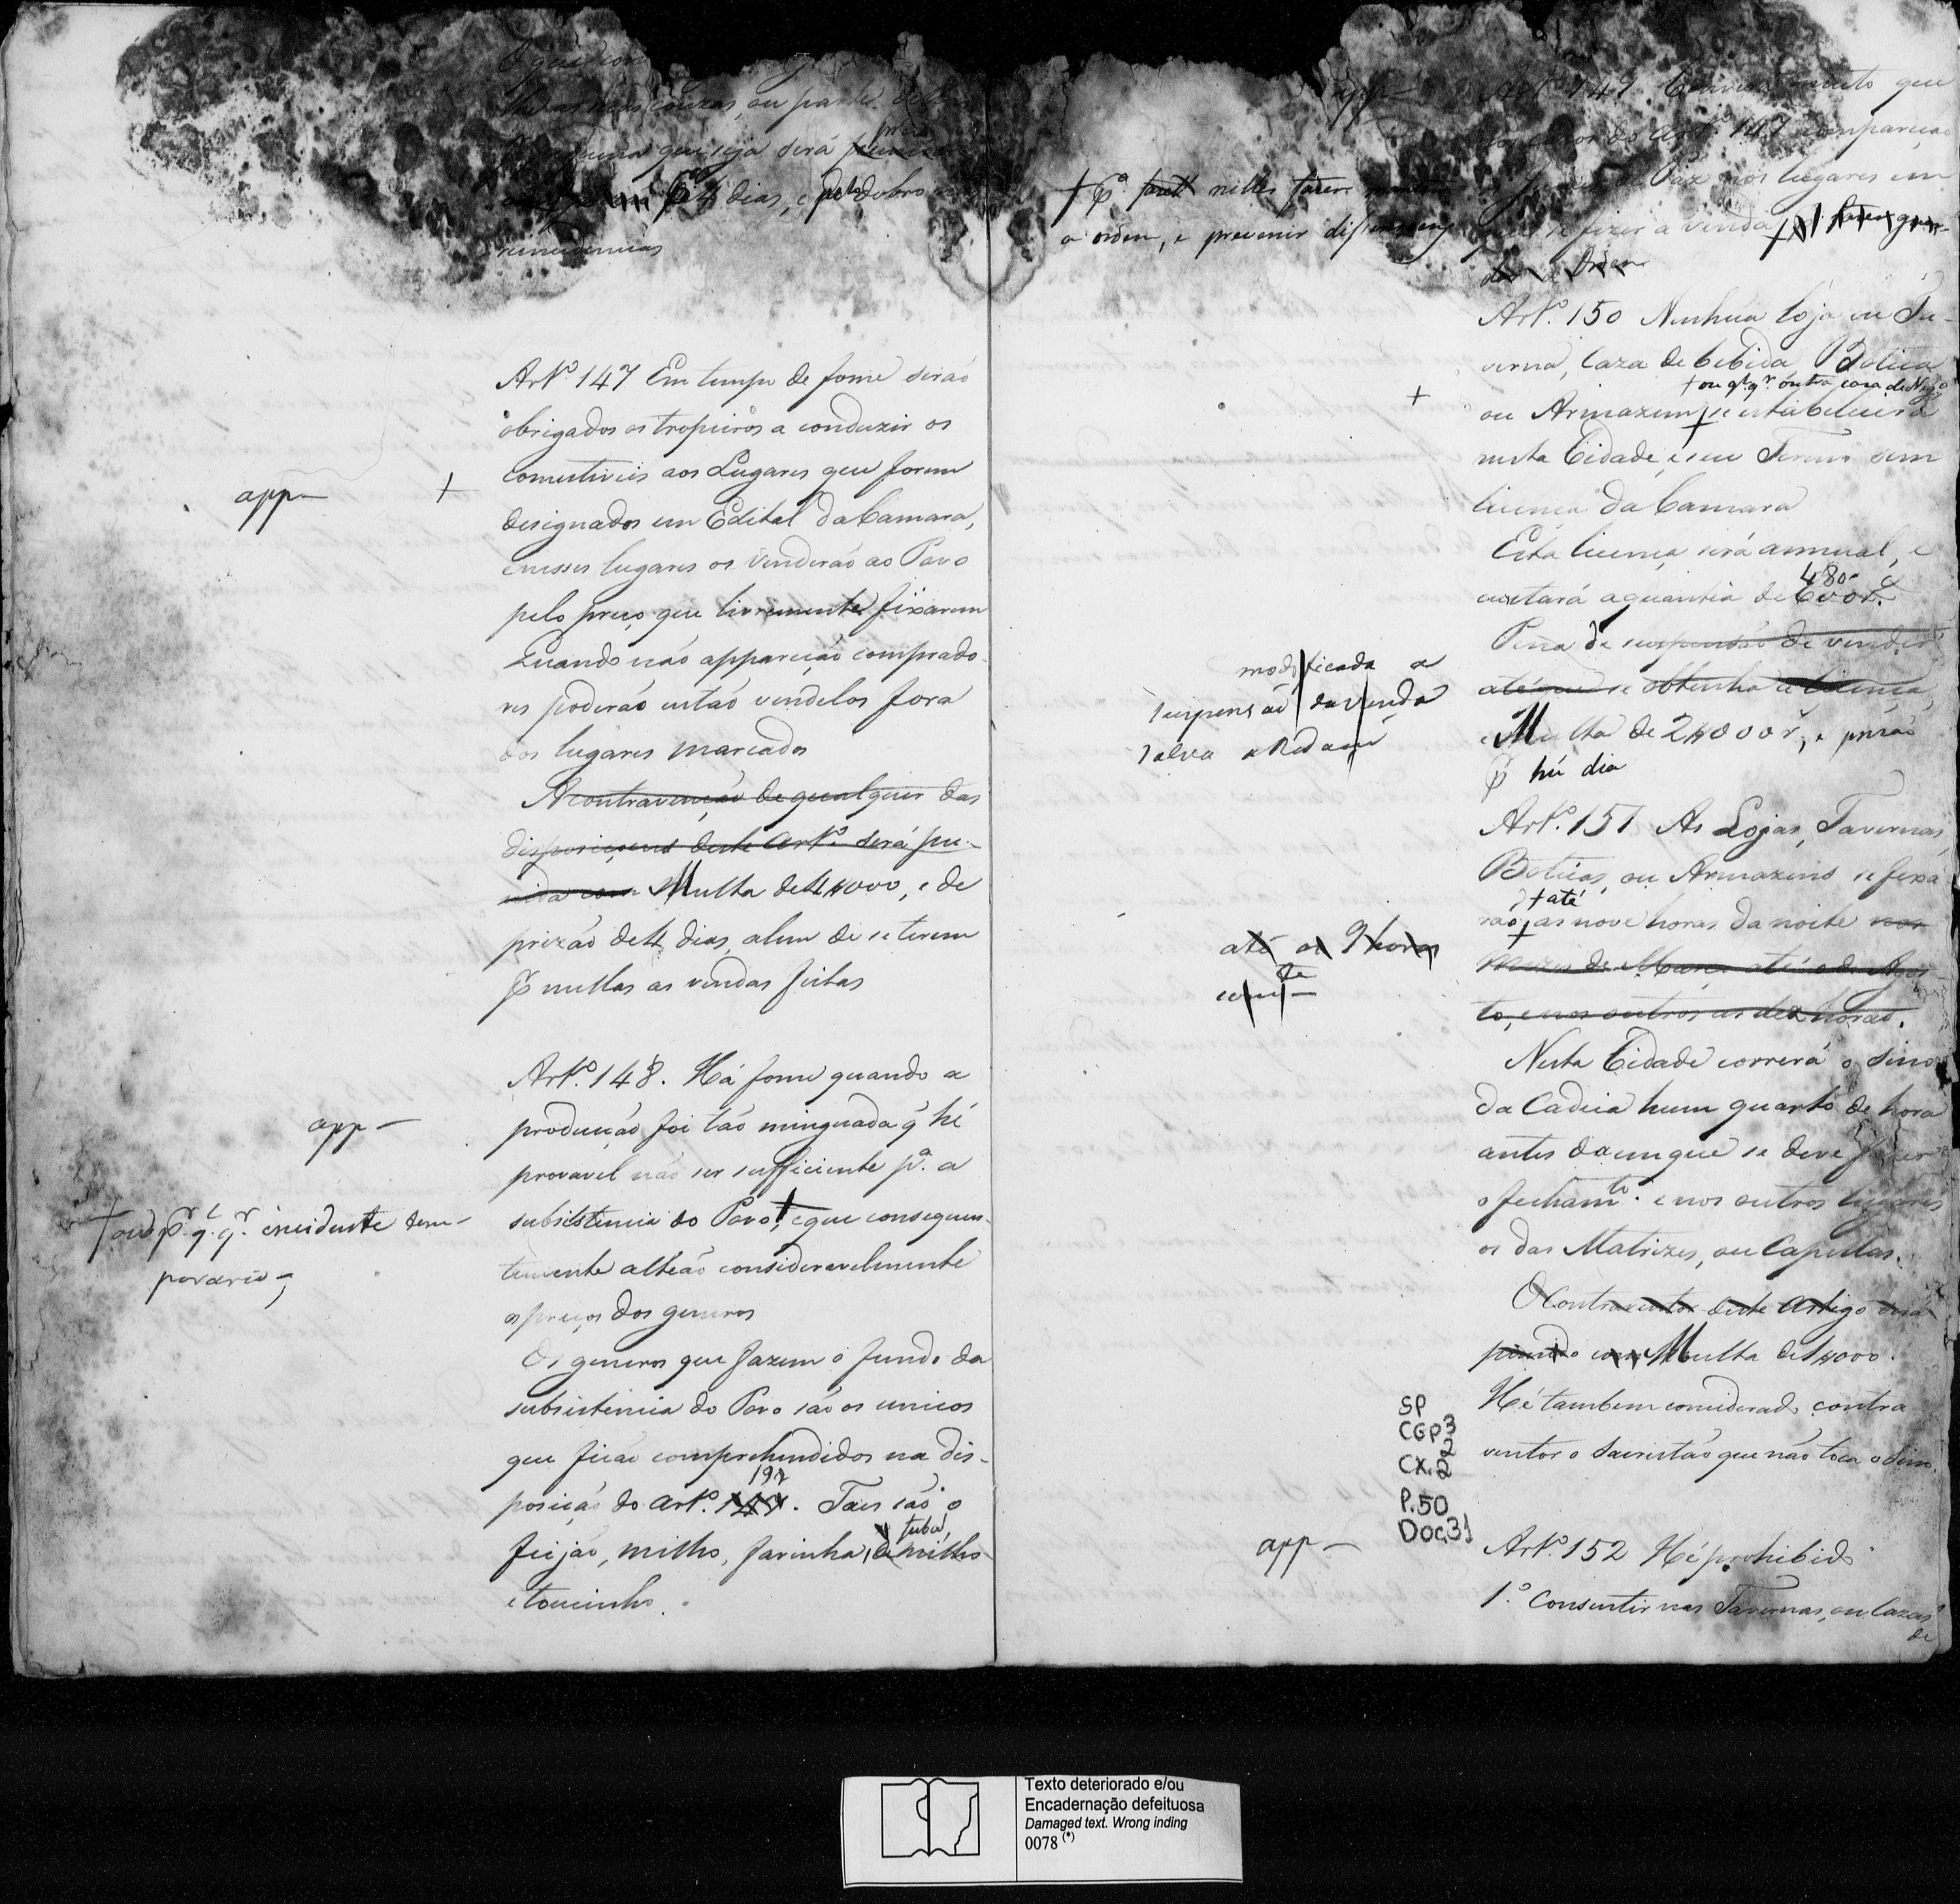 mas couzas, ou parte
que seja será
4 dias, e pelo dobro
reincidencias
Art.º 147 Em tempo de fome serão
obrigados os tropeiros a conduzir os
comestiveis aos Lugares que forem
designados em Edital da Camara,
e nesses lugares os venderão ao Povo
pelo preço que livremente fixarem
Quando não appareção comprado-
res poderão então vendelos fora
dos lugares marcados
A contravenção de qualquer das
disposiçoens deste Art.º será pu-
nida com Multa de 4$000, e de
prizão de 4 dias, alem de se terem
nullas as vendas feitas
app—
+
Art.º 148. Há fome quando a
producção foi tão minguada q̃ hé
provavel não ser sufficiente p.ª a
subsistencia do Povo,+ e que consequen-
temente alteão consideravelmente
os preços dos generos
Os generos que fazem o fundo da
subsistencia do Povo são os unicos
que ficão comprehendidos na dis-
posição do Art.º 147. Taes são o
feijão, milho, farinha, de milho
fubá,
e toucinho.
app—
+ou q.l q.r incidente tem-
porario—
app—
Art.º 149
que
do Art.º 147 compareça
Paz nos lugares em
fizer a venda
Ordem
+ nelles fazer
a ordem, e prevenir
Art.º 150 Nenhúa loja ou Ta-
verna, Caza de bebida, Botica
+ ou q.l q.r outra caza de Neg.º
ou Armazem + se estabelecerá
nesta Cidade, e seu Termo sem
licença da Camara
Esta licença será annual, e
480
custará a quantia de 600 r.
Pena de suspensão de vender
até que se obtenha a licença,
e Multa de 2$000 r, e prizão
p hú dia
+
modificada a
suspensão da venda
salva a Redacção
Art.º 151 As Lojas, Tavernas,
Boticas, ou Armazens se fexa-
+ até
rão, + as nove horas da noite nos
mezes de Março até o de Agos-
to, e nos outros as dez horas.
até as 9 horas
Nesta Cidade correrá o sino
da Cadeia hum quarto de hora
antes da em que se deve fazer
o fecham.to e nos outros lugares
os das Matrizes, ou Capellas.
O Contraventor deste Artigo será
punido com Multa de 1$000.
Hé tambem considerado contra
ventor o Sacristão que não toca o sino.
SP
CGP3
CX.2
2
P.50
Doc.31
app—
Art.º 152 Hé prohibido
1.º Consentir nas Tavernas, ou Cazas
de
Texto deteriorado e/ou
Encadernação defeituosa
Damaged text. Wrong inding
0078 (*)